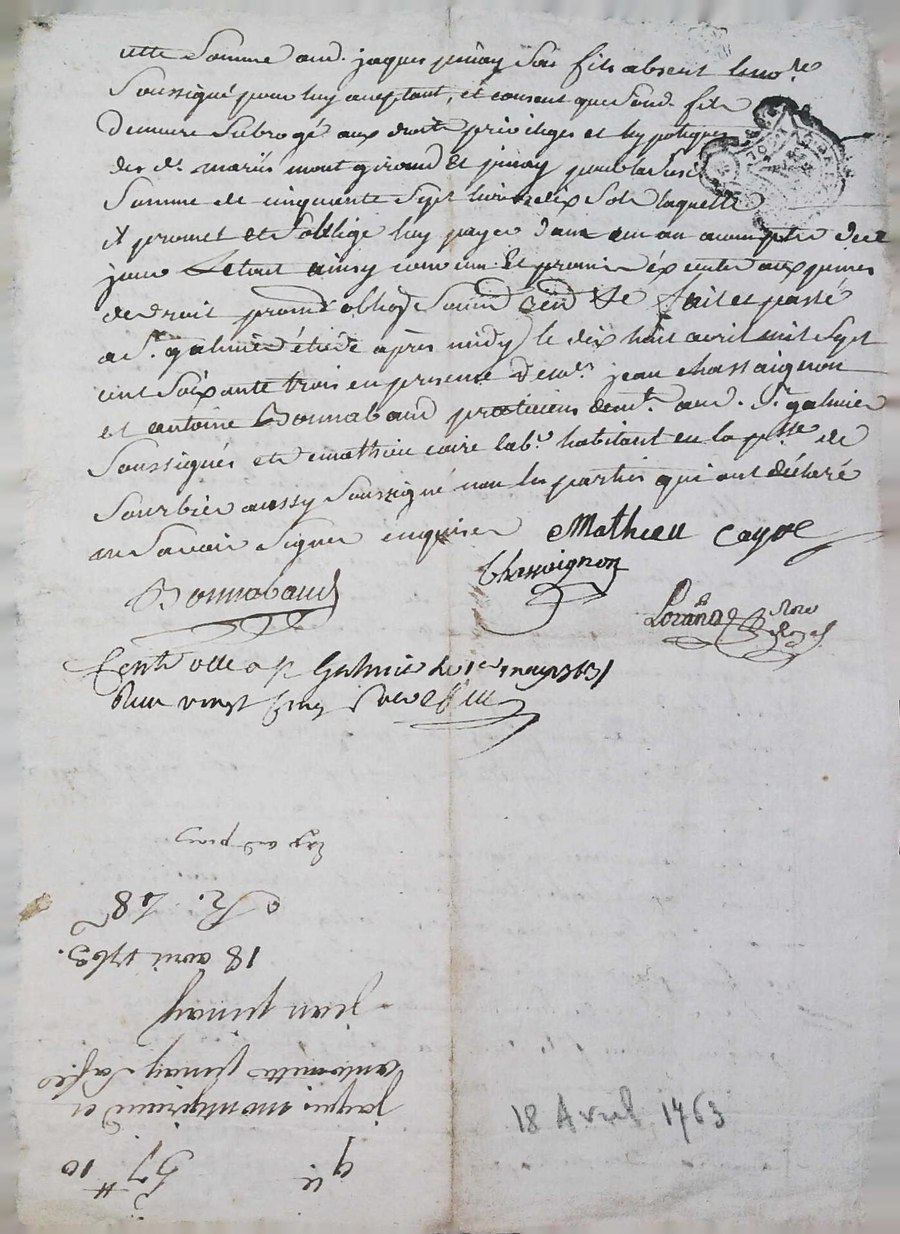 cette Somme aud. jaques pinay Son fils absent le no.re
Soussigné pour luy aceptant, et consent que Sond. fils
demeure Subrogé aux droits privileges et hypoteques
des d. mariés mont giraud Et pinay pour lad.
Somme de cinquante Sept livres dix Sols laquelle
il promet et s'obllige luy payer dans un an a compter de ce
jour Le tout ainsy convenu Et promis éxecuter aux peines
de droit prom. oblig. Soum. Ren. fait et passé
a S.t galmier étude après midy le dix huit avril mil Sept
cent Soixante trois en presence de m.es jean Chassaignon
et antoine Bonnabaud praticiens dem.t aud. S.t galmier
Soussignés et de mathieu caire lab.r habitant en la p.sse de
Sourbier aussy Soussigné non les parties qui ont déclaré
ne Savoir Signer enquises Mathieu Cayre
Chassaignon
Bonnabaud
No.re Royal
Contrôllé a S.t Galmier le 1er may 1763
vingt
jaques montgiraud et
antoinette pinay
jean pinay
18 avril 1763.
57 10
18 Avril 1763